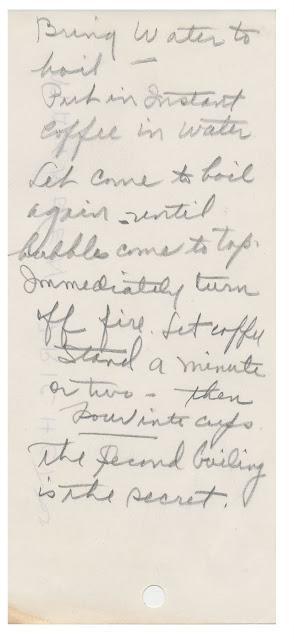 Bring Water to
boil —
Put in Instant
Coffee in Water
Let come to boil
again - until
bubbles come to top.
Immediately turn
off fire. Let coffee
Stand a minute
or two - then
Pour into cups.
The second boiling
is the secret.